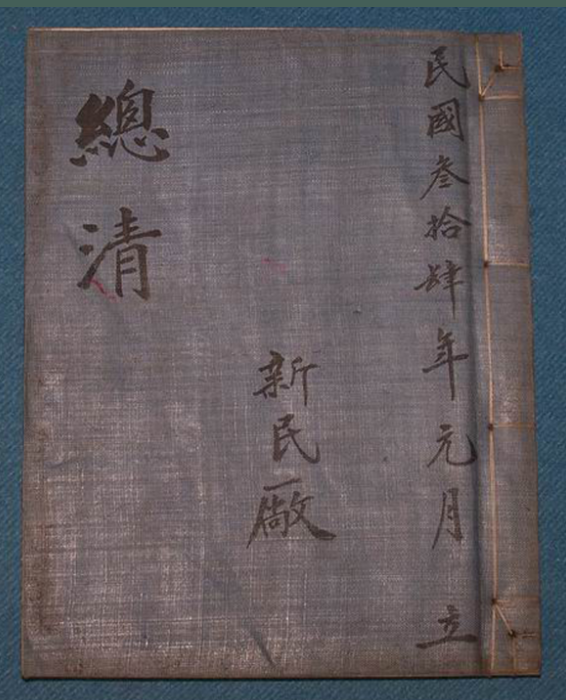 民國叁拾肆年元月立
新民廠
總清